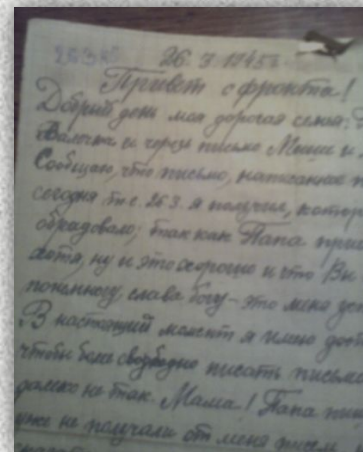 26.3.1945г
Привет с фронта!
Добрый день моя дорогая семья:
Валочка и через письмо Миши и
Сообщаю, что письмо, написанное
сегодня т.е. 26 3. я получил, котор
обрадовало; так как Папа при
хотя, ну и это хорошо и что Вы
понемногу, слава богу - это меня
В настоящий момент я имею
чтобы более свободно писать письма
далеко не так. Мама! Папа пиш
уже не получали от меня писем